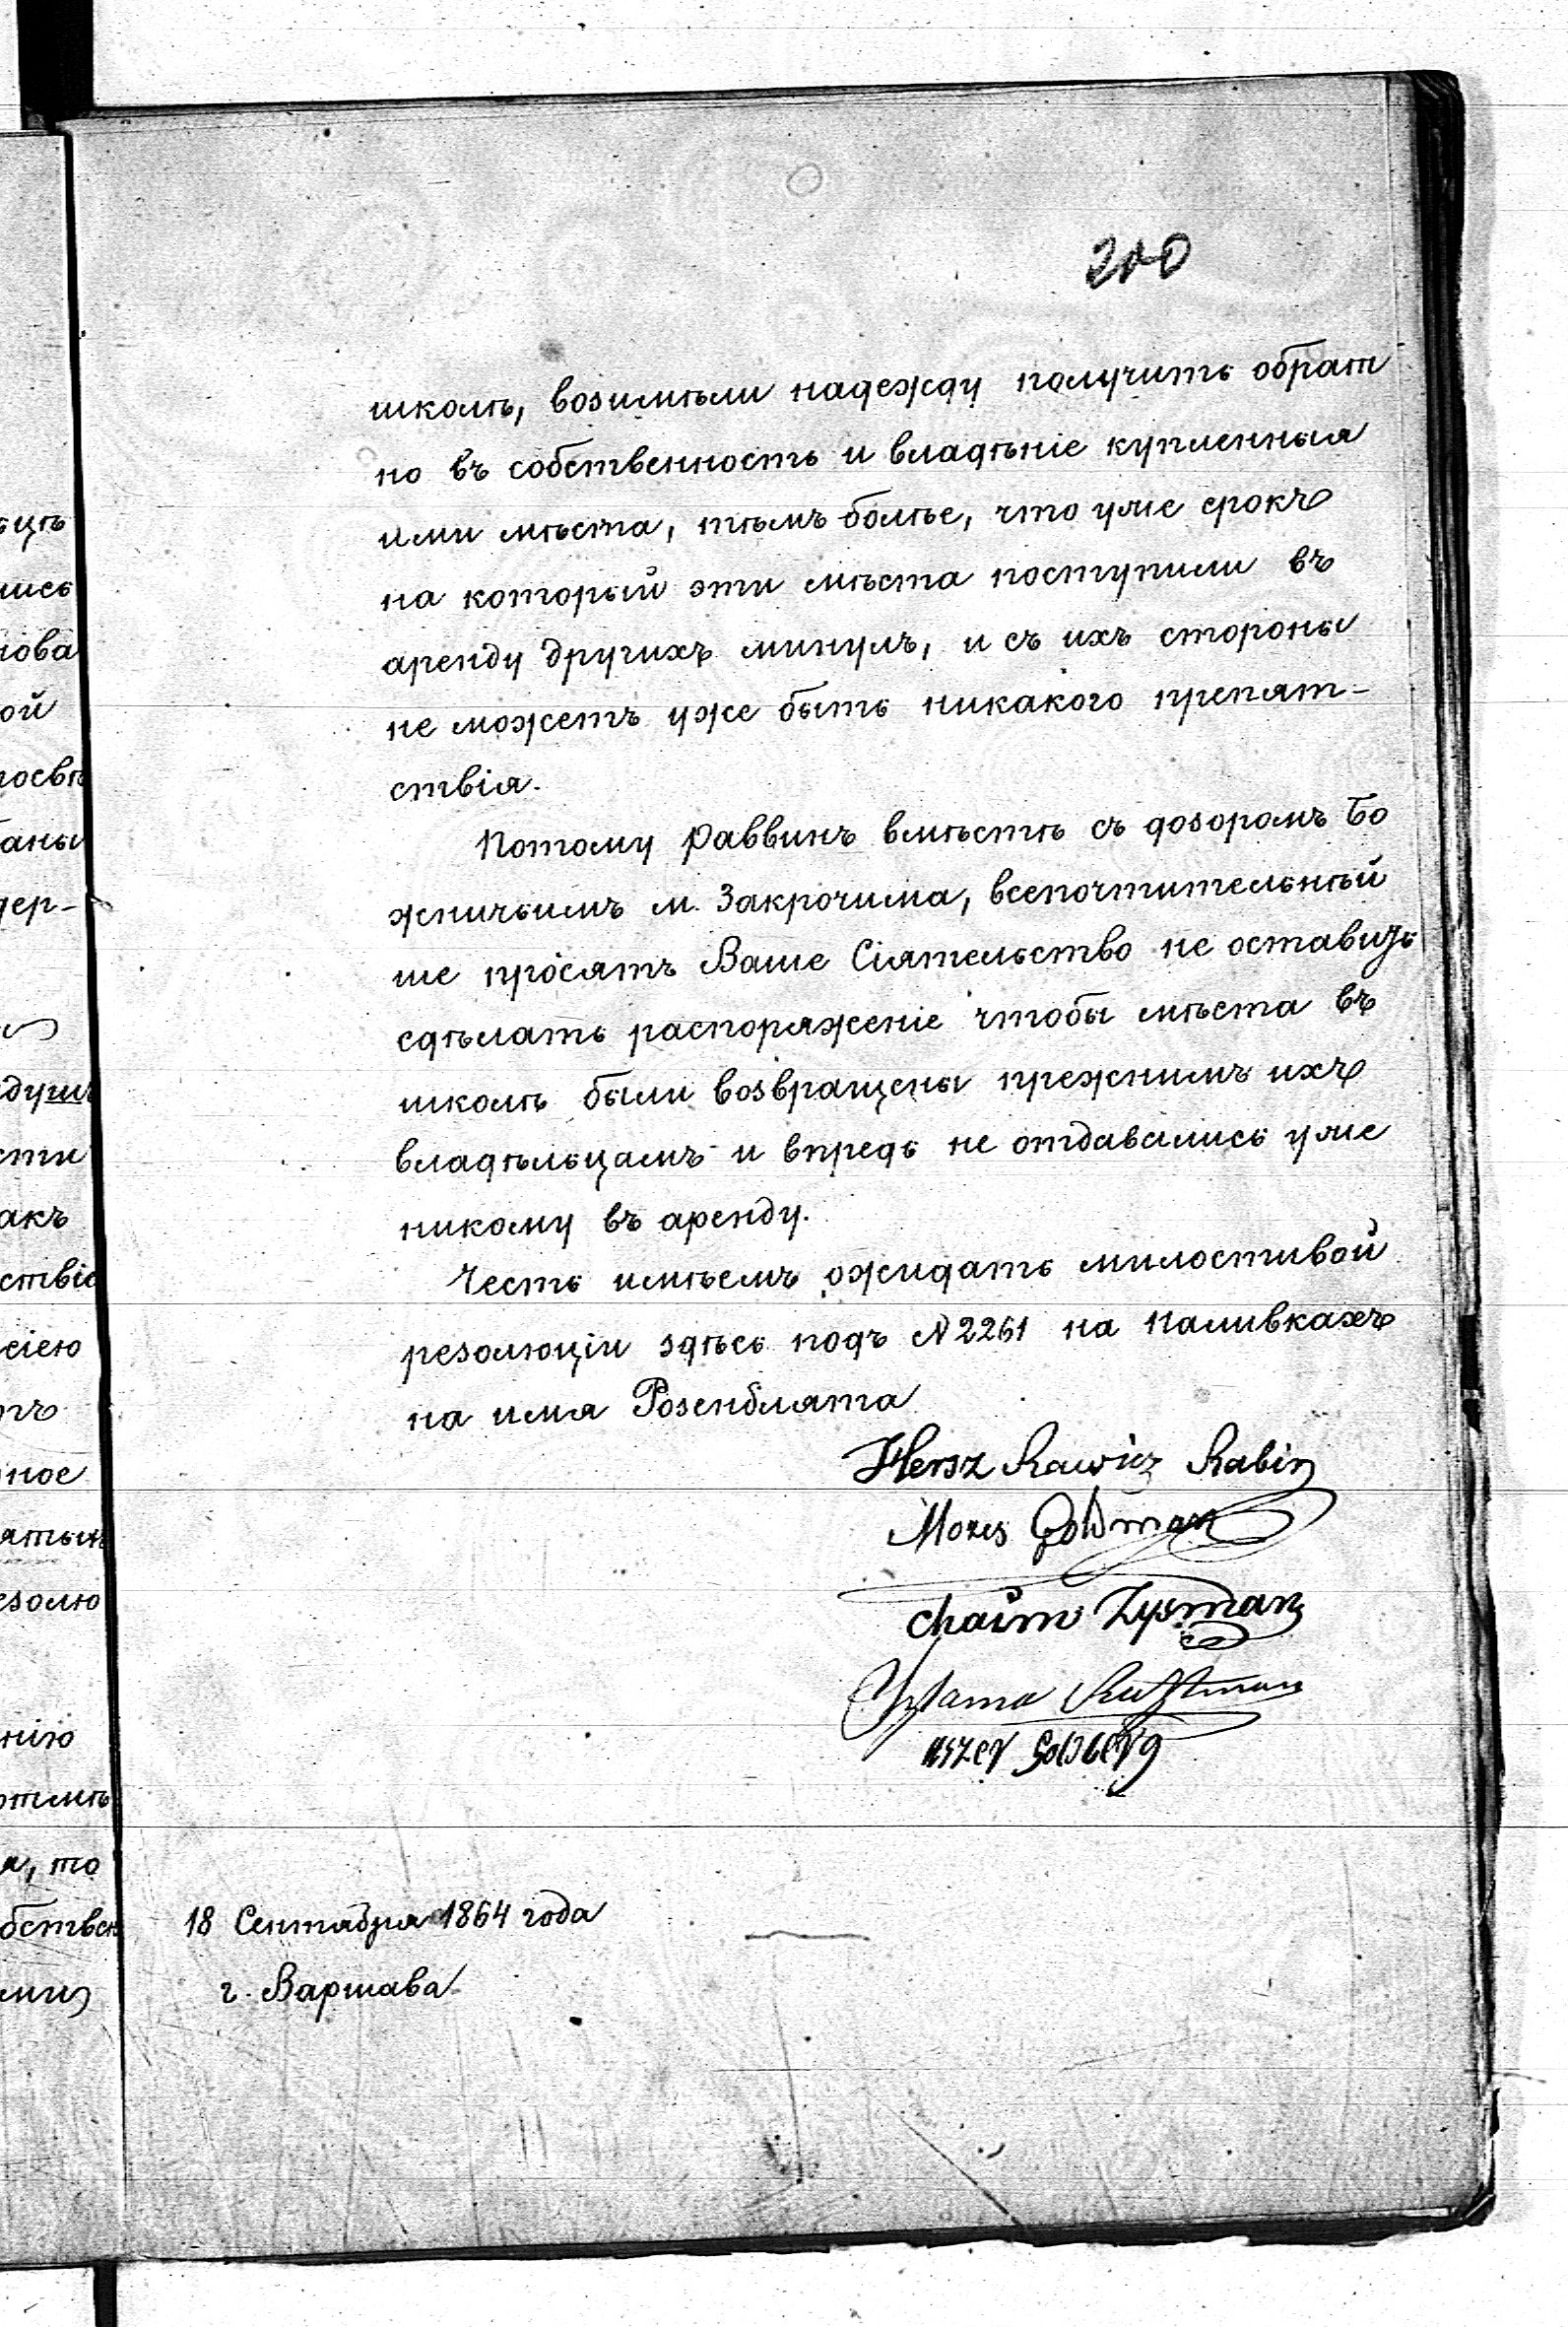 200
школѣ, возимѣли надежду получить обрат
но въ собственность и владѣніе купленныя
ими мѣста, тѣмъ болѣе, что уже срокъ
на который эти мѣста поступили въ
аренду другихъ минулъ, и съ ихъ стороны
не можетъ уже быть никакого препят-
ствія.
Потому раввинъ вмѣстѣ съ дозоромъ Бо
жничьимъ м. Закрочима, всепочтительнѣй
ше просятъ Ваше Сіятельство не оставить
сдѣлать распоряженіе чтобы мѣста въ
школѣ были возвращены прежнимъ ихъ
владѣльцамъ и впредь не отдавались уже
никому въ аренду.
Честь имѣемъ ожидать милостивой
резолюціи здѣсь подъ № 2261 на Наливкахъ
на имя Розенблята
Hersz Rawicz Rabin
Mozes Goldman
Chaim Zysman
Szlama
Aszer Goldberg
18 Сентября 1864 года
г. Варшава